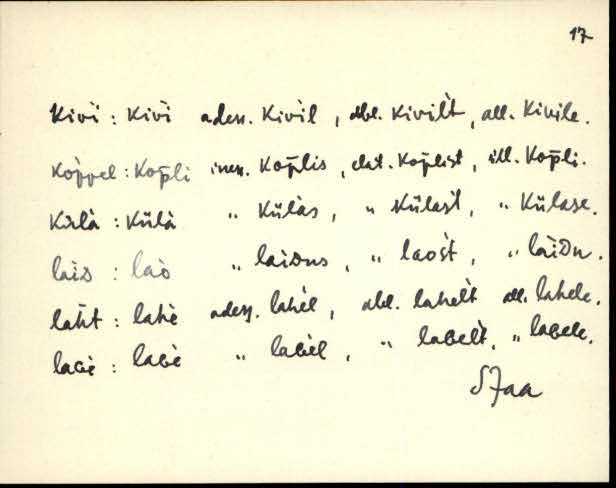 17
kivì : kivì adess. kivìl, abl. kivìlt, all. kivile.
koppel : kop̄li iness. kop̄lis, elat. kop̄list, ill. kop̄li.
külà : külà " külàs, " külàst, " külase.
laiD : lao " laiDus, " laost, " laiDu.
laht : lahè adess. lahèl, abl. lahelt all. lahele.
laGè : laGè " laGèl, " laGelt, " lagele.